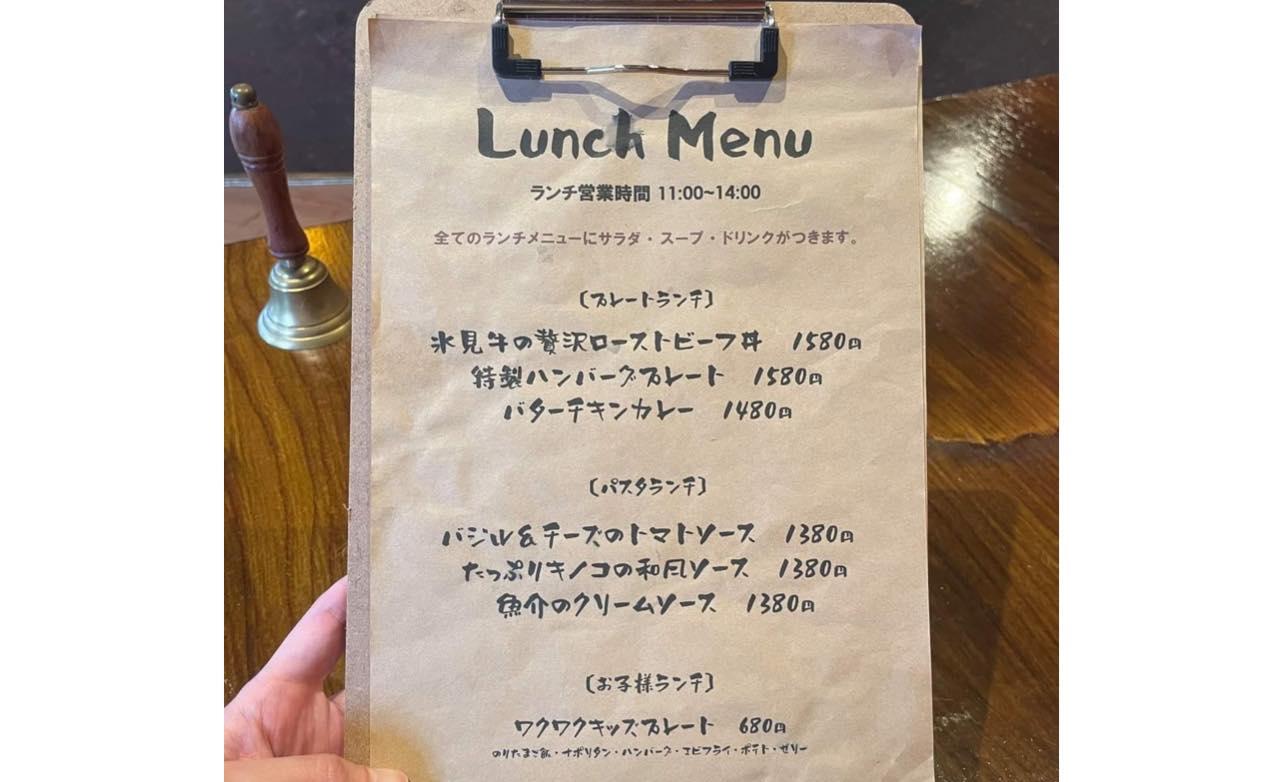 Lunch Menu
ランチ営業時間 11:00~14:00
全てのランチメニューにサラダ・スープ・ドリンクがつきます。
〔プレートランチ〕
氷見牛の贅沢ローストビーフ丼 1580円
特製ハンバーグプレート 1580円
バターチキンカレー 1480円
〔パスタランチ〕
バジル&チーズのトマトソース 1380円
たっぷりキノコの和風ソース 1380円
魚介のクリームソース 1380円
〔お子様ランチ〕
ワクワクキッズプレート 680円
のりたまご飯・ナポリタン・ハンバーグ・エビフライ・ポテト・ゼリー